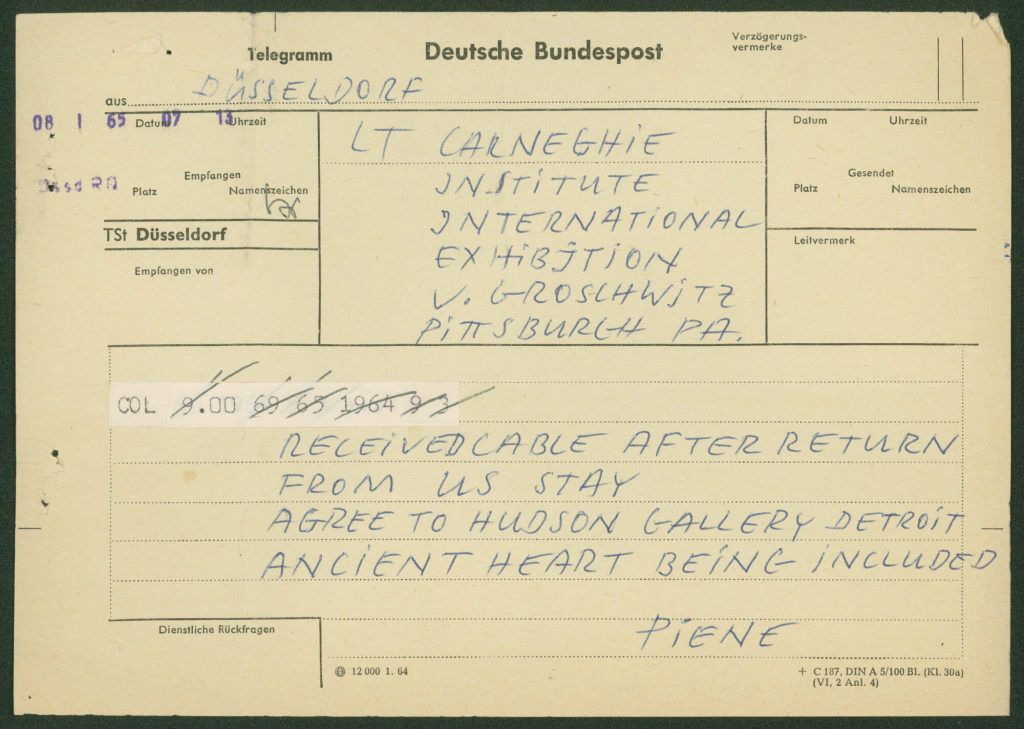 Telegramm
Deutsche Bundespost
Verzögerungs-
vermerke
aus DÜSSELDORF
08 1 65 07 13
Datum Uhrzeit
Empfangen
Platz Namenszeichen
TSt Düsseldorf
Empfangen von
LT CARNEGHIE
INSTITUTE
INTERNATIONAL
EXHIBITION
V. GROSCHWITZ
PITTSBURGH PA.
Datum Uhrzeit
Gesendet
Platz Namenszeichen
Leitvermerk
COL 9.00 69 65 1964 9 3
RECEIVED CABLE AFTER RETURN
FROM US STAY
AGREE TO HUDSON GALLERY DETROIT
ANCIENT HEART BEING INCLUDED
PIENE
Dienstliche Rückfragen
12 000 1. 64
+ C 187, DIN A 5/100 Bl. (Kl. 30a)
(VI, 2 Anl. 4)